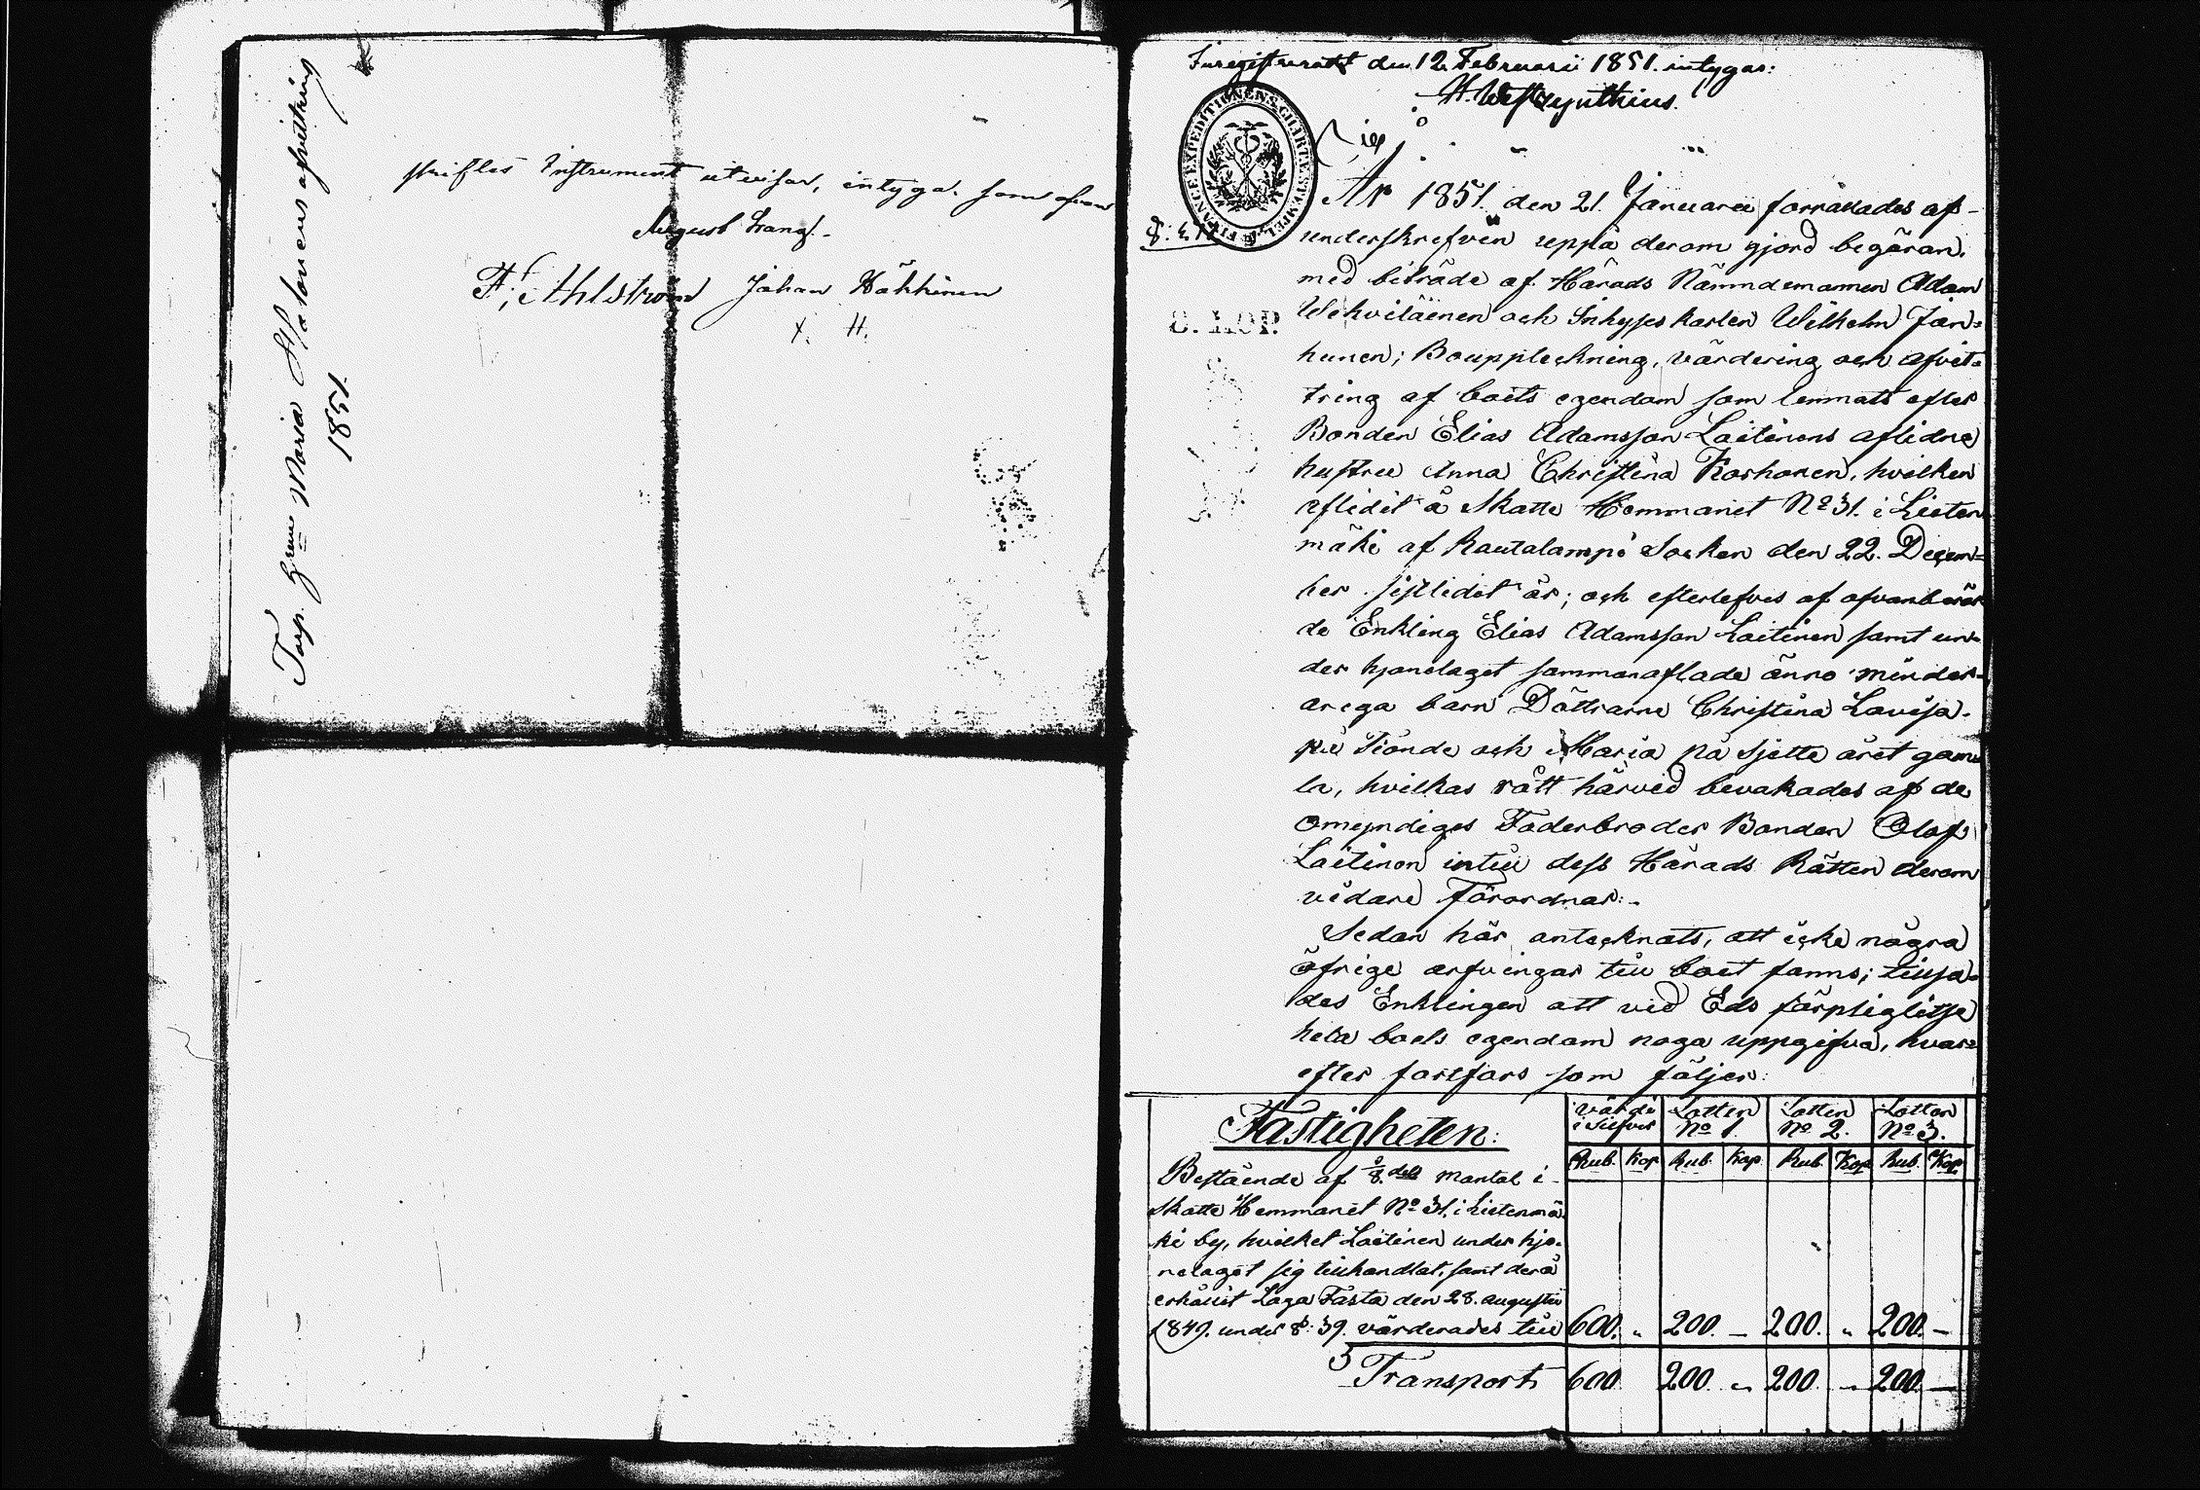 Torp. Enne Maria Halonens afvittring
1851.
skiftes Instrument utvisar, intyga. som ofvan
August Frang.
F. Ahlström Johan Häkkinen
X. H.
Inregistreradt den 12 Februari 1851. intygar:
H. Westzynthius.
FINANCE EXPEDITIONENS CHARTÆ STEMPEL
8. KOP.
År 1851. den 21. Januarii förrättades af
underskrefven uppå derom gjord begäran,
med biträde af Härads Nämndemannen Adam
Wehviläinen och Inhyses karlen Wilhelm Jän=
hunen; Bouppteckning, värdering och afvit=
tring af boets egendom som lemnats efter
Bonden Elias Adamsson Laitinens aflidne
hustru Anna Christina Korhonen, hvilken
aflidit å Skatte Hemmanet No 31. i Lieten
mäki af Rautalampi Socken den 22. Decem=
ber sistlidet år; och efterlefves af ofvanberör
de Enkling Elias Adamsson Laitinen samt un=
der hjonelaget sammanaflade ännu minder=
ariga barn Döttrarne Christina Lovisa.
på Tionde och Maria på sjette året gam
la, hvilkas rätt härvid bevakades af de
omyndiges Faderbroder Bonden Olof
Laitinen intill dess Härads Rätten derom
vidare förordnar:-
Sedan här antecknats, att icke några
öfrige arfvingar till boet fanns; tillsa=
des Enklingen att vid Eds förpligtelse
hela boets egendom noga uppgifva, hvar=
efter fortfors som följer:
Fastigheten:
värde i silfver
Lotten No 1.
Lotten No 2.
Lotten No 3.
Rub. Kop Rub. Kop Rub. Kop Rub. Kop
Bestående af 8.dels mantal i
Skatte Hemmanet No 31. i Lietenmä
ki by, hvilket Laitinen under hjo=
nelaget sig tillhandlat, samt derå
erhållit Laga Fasta den 28. Augusti
1849. under §: 39. värderades till 600. „ 200. — 200. „ 200. —
Transport 600. 200. „ 200. — 200. —